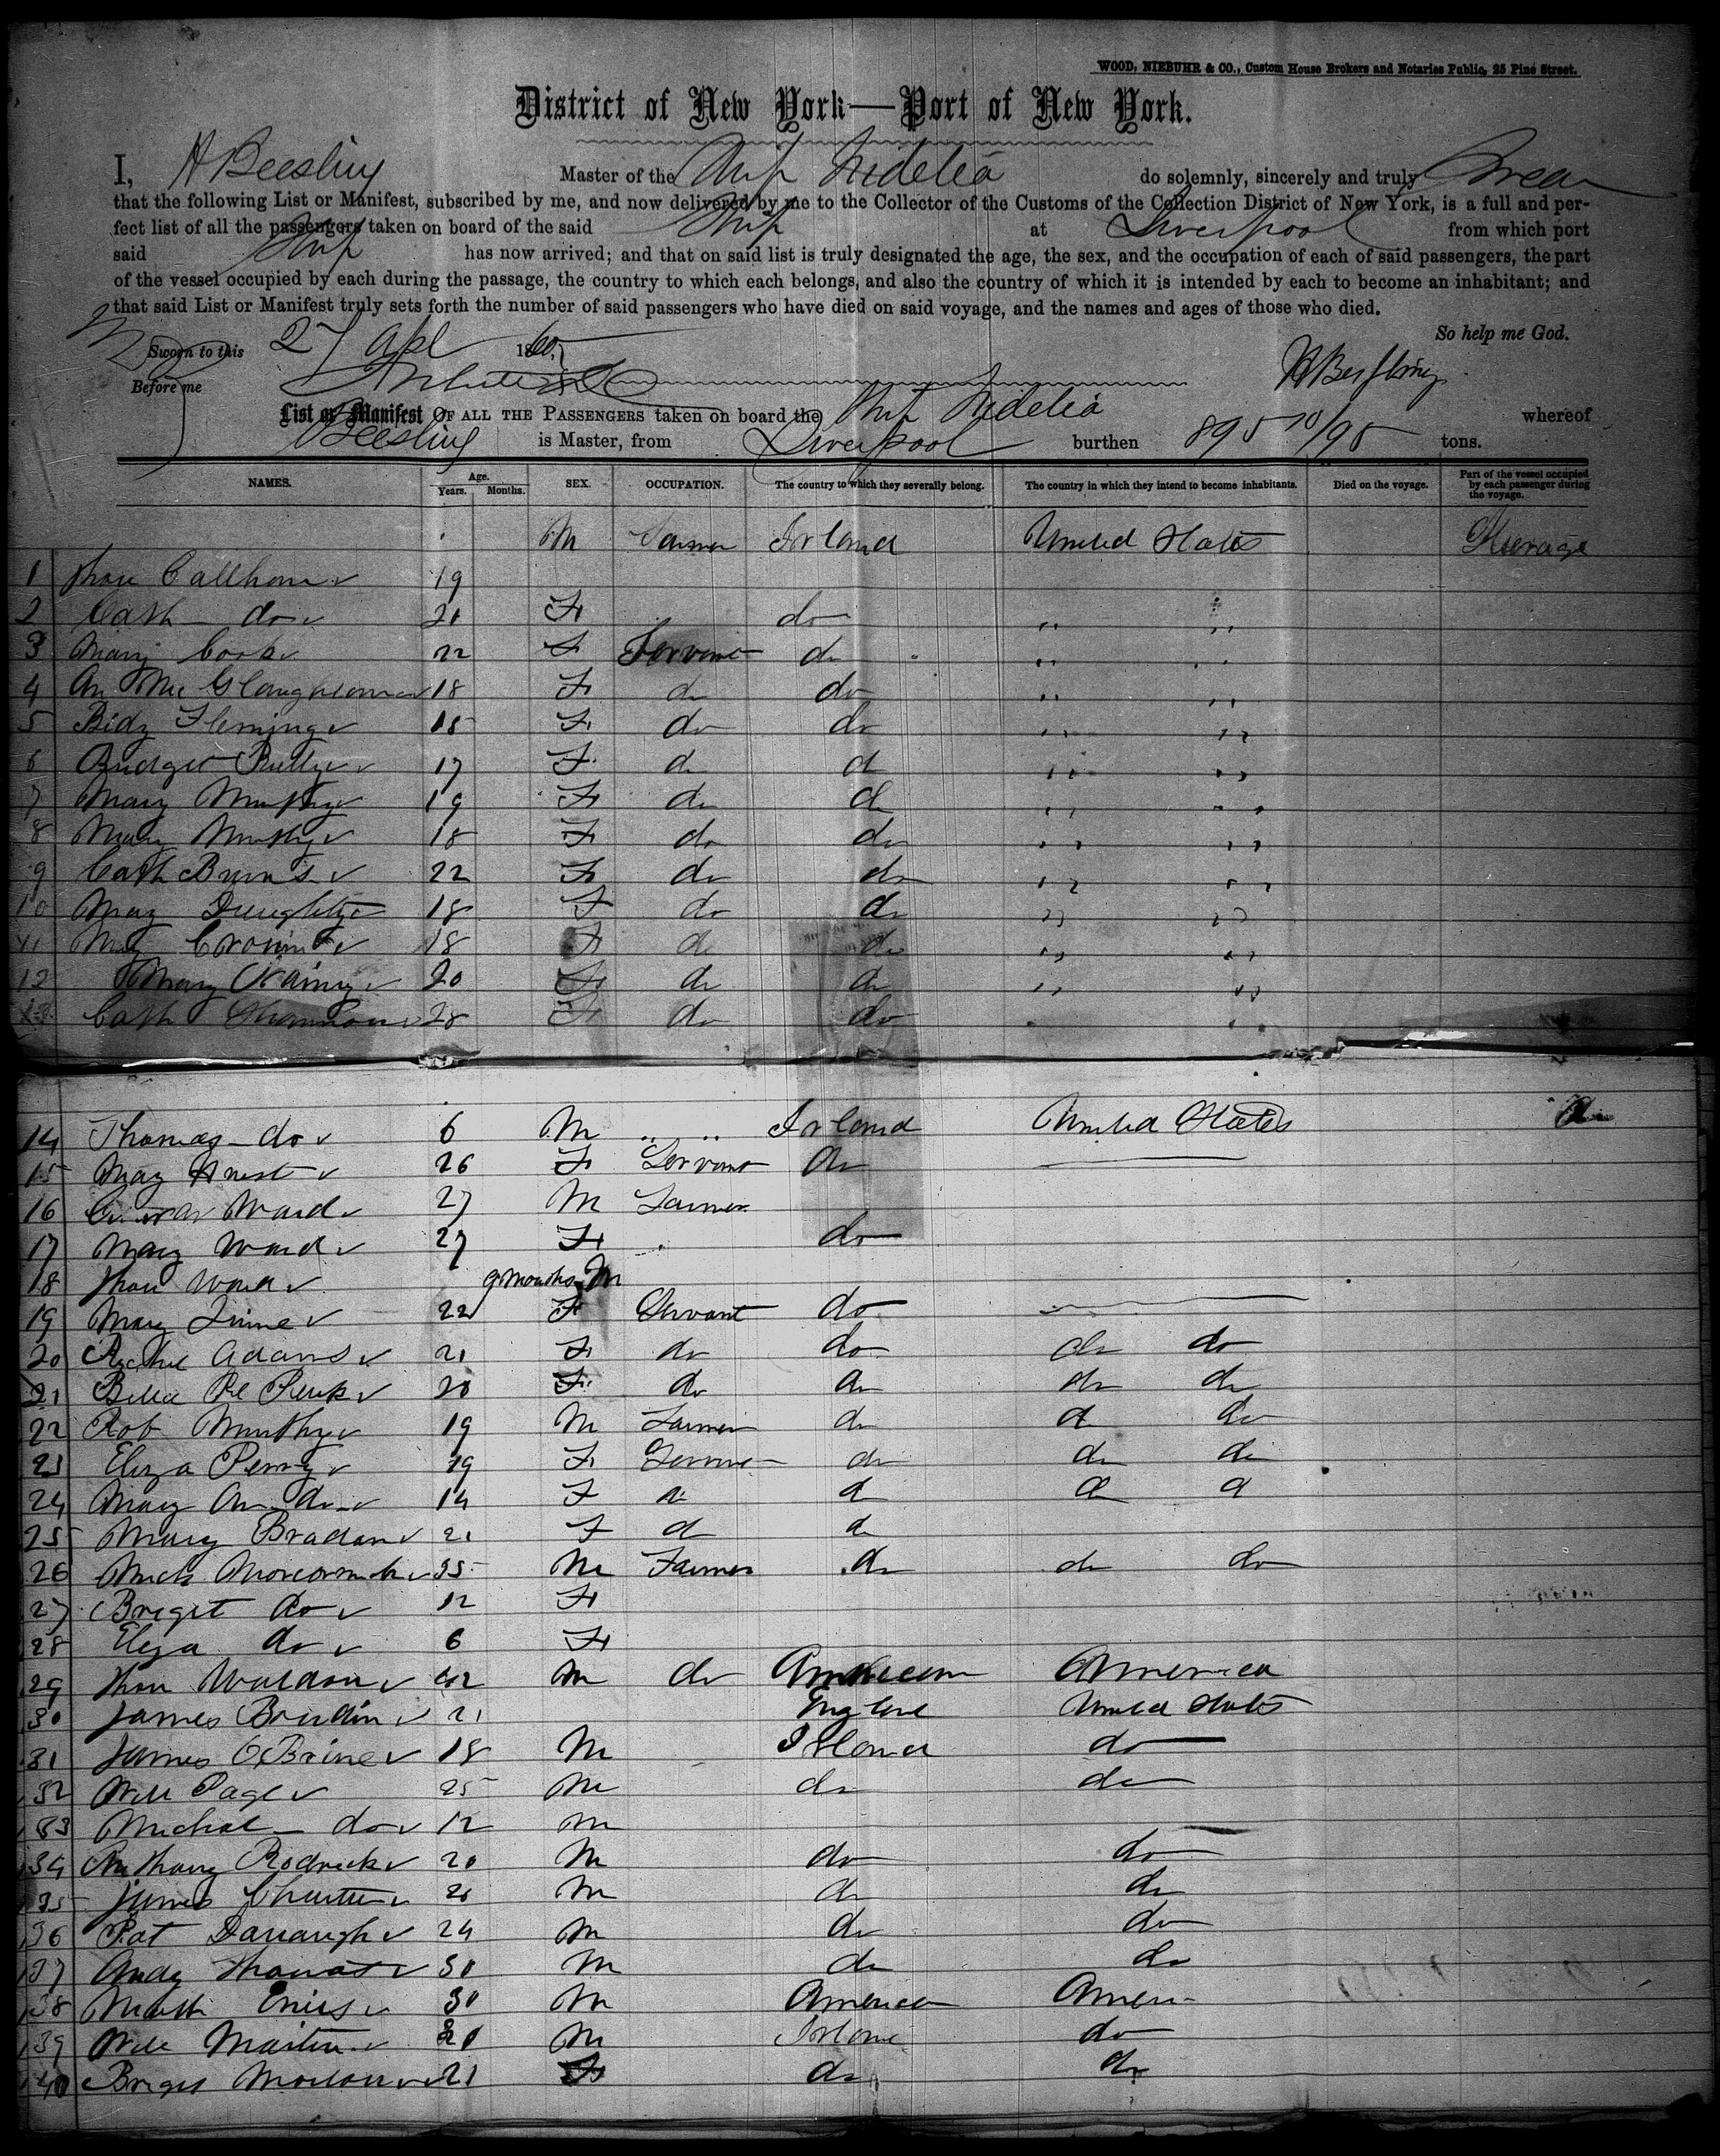 WOOD, NIEBUHR & CO., Custom House Brokers and Notaries Public, 25 Pine Street.
District of New York—Port of New York.
I, H Beesling Master of the Ship Fidelia do solemnly, sincerely and truly Swear
that the following List or Manifest, subscribed by me, and now delivered by me to the Collector of the Customs of the Collection District of New York, is a full and per-
fect list of all the passengers taken on board of the said Ship at Liverpool from which port
said Ship has now arrived; and that on said list is truly designated the age, the sex, and the occupation of each of said passengers, the part
of the vessel occupied by each during the passage, the country to which each belongs, and also the country of which it is intended by each to become an inhabitant; and
that said List or Manifest truly sets forth the number of said passengers who have died on said voyage, and the names and ages of those who died.
So help me God.
Sworn to this 27 Apl 1860
Before me
List or Manifest OF ALL THE PASSENGERS taken on board the Ship Fidelia whereof
Beesling is Master, from Liverpool burthen 895 70/95 tons.
NAMES. Age. Years. Months. SEX. OCCUPATION. The country to which they severally belong. The country in which they intend to become inhabitants. Died on the voyage. Part of the vessel occupied by each passenger during the voyage.
M Farmer Irland United States Steerage
1 Callhoun 19
2 Cath do 20 F do " "
3 Mary Cook 22 F Servant do " "
4 An Mc 18 F do do " "
5 Bidy Fleming 18 F do do " "
6 Bridget 17 F do do " "
7 Mary Murphy 19 F do do " "
8 Mary Murphy 18 F do do " "
9 Cath Burns 22 F do do " "
10 Mary 18 F do do " "
11 18 F do do " "
12 Mary 20 F do do " "
13 Cath Shannon 28 F do do
14 Thomas do 6 M " " Irland United States do
15 Mary 26 F Servant do
16 Ward 27 M Farmer
17 Mary Ward 27 F do
18 Ward 9 Months M
19 Mary 22 F Servant do
20 Adams 21 F do do do do
21 Bella 20 F do do do do
22 Rob Murthy 19 M Farmer do do do
23 Eliza Perry 19 F Servant do do do
24 Mary An do 14 F do do do do
25 Mary Bradan 21 F do do
26 Mich 35 M Farmer do do do
27 Briget do 12 F
28 Eliza do 6 F
29 Waldron 42 M do American America
30 James 21 England United States
31 James OBrine 18 M Irland do
32 Will Page 25 M do do
33 Michal do 12 M
34 Anthony Rodrick 20 M do do
35 James 20 M do do
36 Pat 24 M do do
37 Andy 30 M do do
38 Math 30 M America Amer
39 Will Martin 20 M Irland do
40 Briget 21 F do do